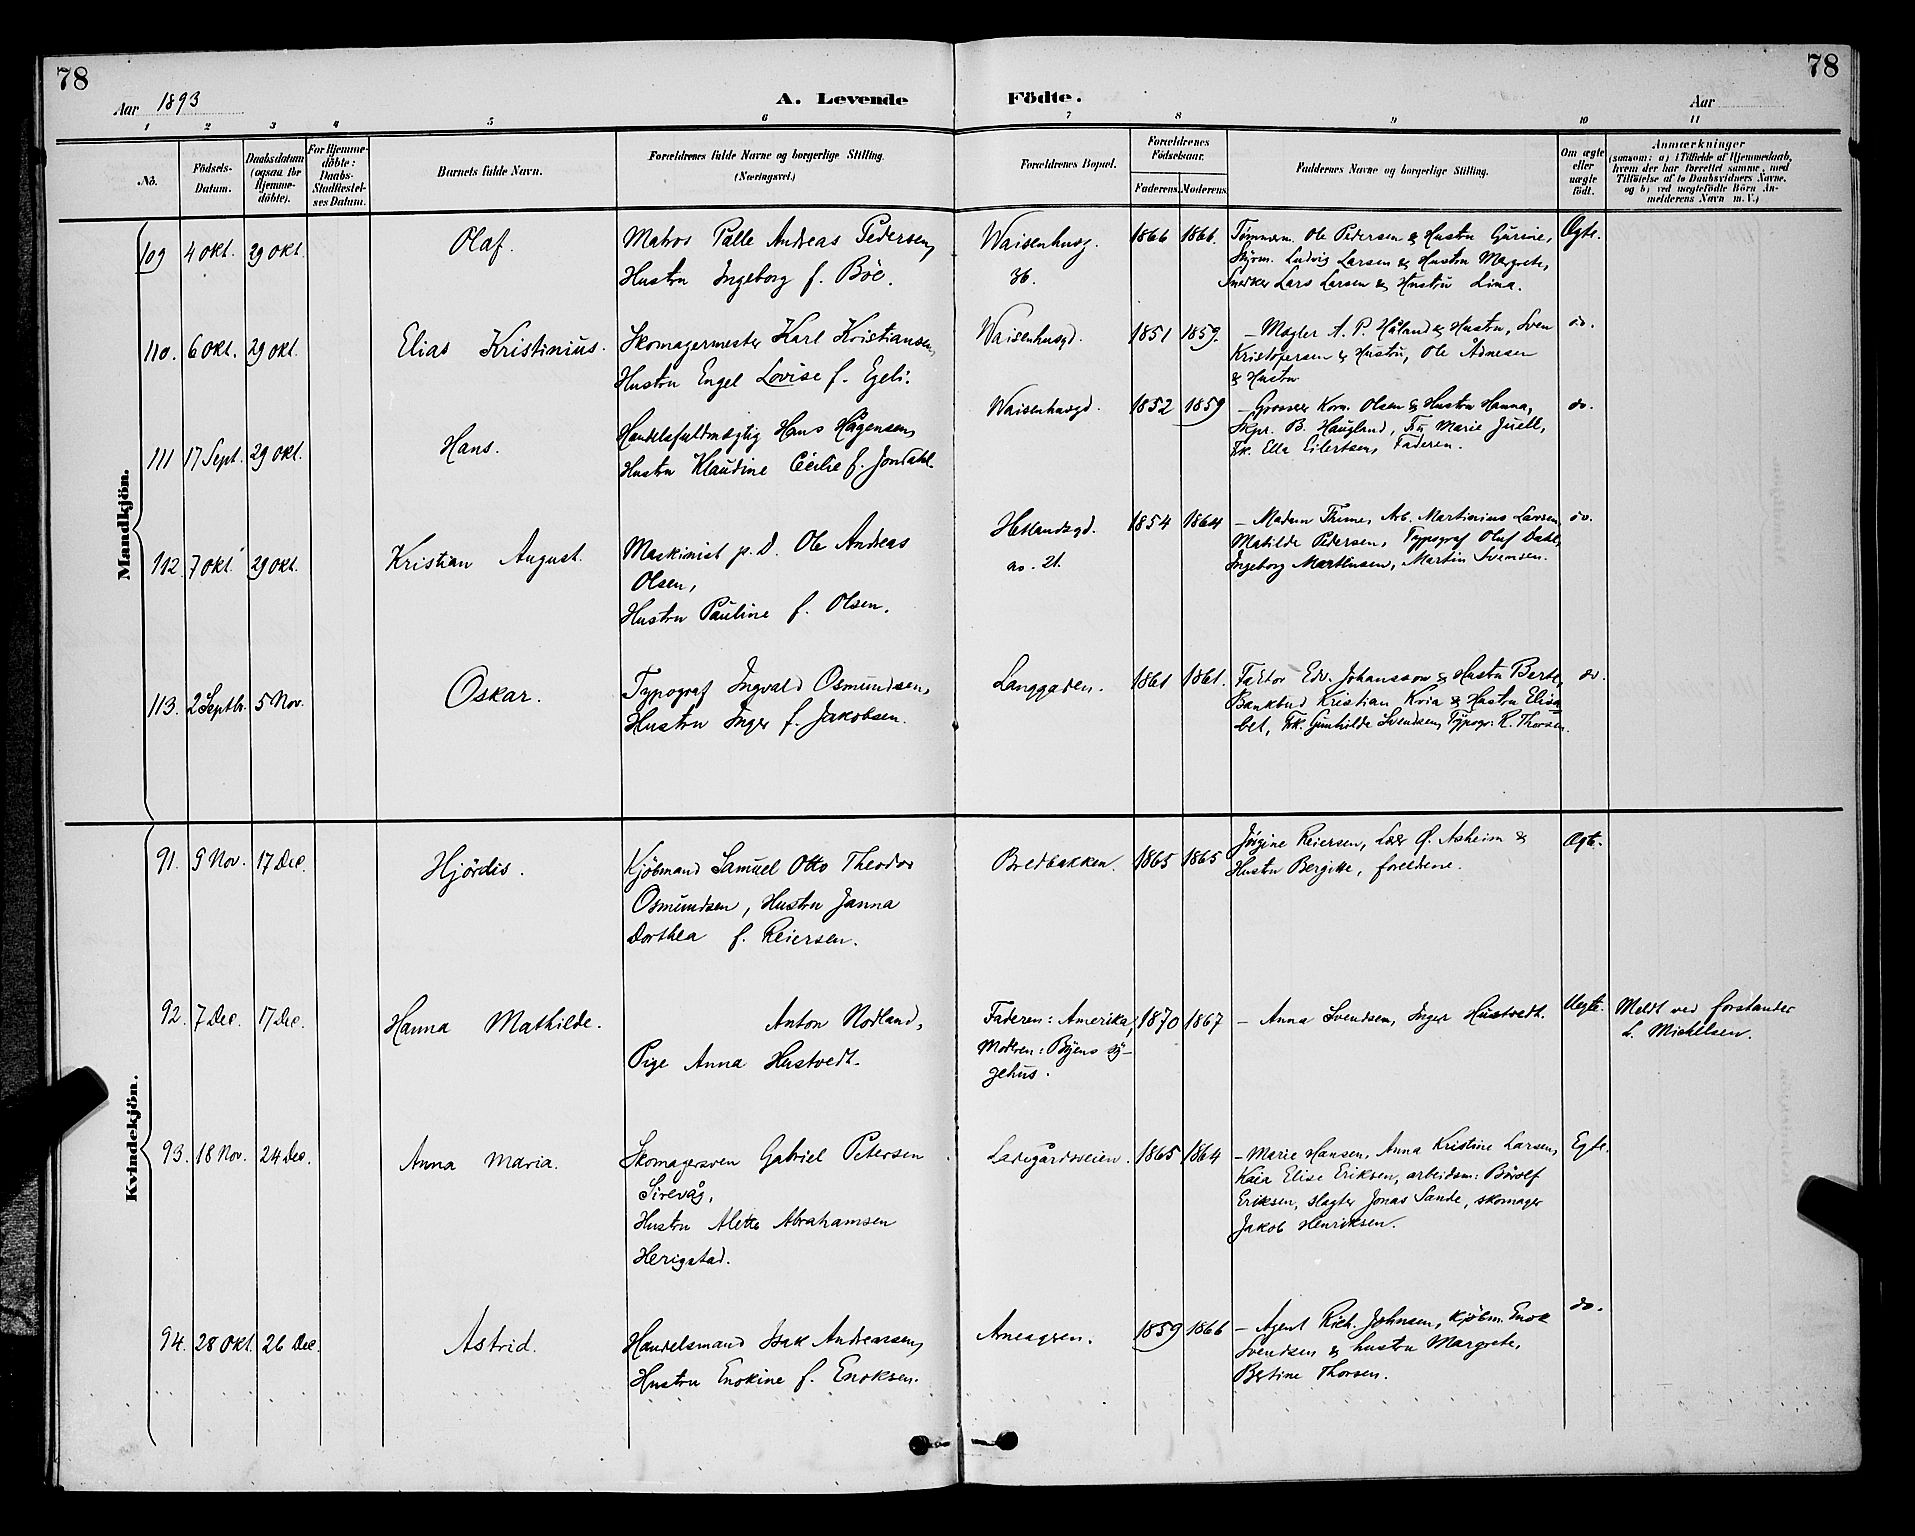 78
78
Aar 1893
A. Levende
Födte.
Aar
1 2 3 4 5 6 7 8 9 10 11
No.
Födsels-Datum.
Daabsdatum (ogsaa for Hjemme-döbte).
For Hjemme-döbte: Daabs-Stadfæstel-ses Datum.
Barnets fulde Navn.
Forældrenes fulde Navne og borgerlige Stilling.
(Næringsvei.)
Forældrenes Bopæl.
Forældrenes Födselsaar.
Faderens. Moderens.
Faddernes Navne og borgerlige Stilling.
Om ægte eller uægte födt.
Anmærkninger
(saasom: a) i Tilfælde af Hjemmedaab,
hvem der har forrettet samme, med
Tilföielse af to Daabsvidners Navne.
og b) ved uægtefödte Börn An-
melderens Navn m. V.)
Mandkjön.
109 4 Okt. 29 Okt. Olaf. Matros Palle Andreas Pedersen,
Hustru Ingeborg f. Böe.
Waisenhusg.
36.
1866 1861.
Tømmerm. Ole Pedersen & Hustru Gurine,
Ludvig Larsen & Hustru Margrete,
Snedker Lars Larsen & Hustru Lina.
Ægte.
110. 6 Okt. 29 Okt. Elias Kristinius. Skomagermester Karl Kristiansen,
Hustru Engel Lovise f. Egeli.
Waisenhusgd. 1851 1859.
– Mægler A. P. Håland & Hustru, Sven
Kristofersen & Hustru, Ole Ådnesen
& Hustru
do.
111 17 Sept. 29 Okt. Hans. Handelsfuldmægtig Hans Hågensen,
Hustru Klaudine Cecilie f. Jondahl.
Waisenhusgd. 1852 1859
– Grosserer Korn. Olsen & Hustru Hanna,
Skpr. B. Haugland, Fru Marie Juell,
Frk. Ella Eilertsen, Faderen.
do.
112 7 Okt. 29 Okt. Kristian August. Maskinist p. D. Ole Andreas
Olsen,
Hustru Pauline f. Olsen.
Hetlandsgd.
no. 21.
1854 1864
– Madam Thime, Arb. Martinius Larsen,
Matilde Pedersen, Typograf Oluf Dahl,
Ingeborg Marthusen, Martin Svensen.
do.
113. 2 Septbr. 5 Nov. Oskar. Typograf Ingvald Osmundsen,
Hustru Inger f. Jakobsen.
Langgaden. 1861 1861.
Faktor Edv. Johansson & Hustru Berte,
Bankbud Kristian Kvia & Hustru Elisa-
bet, Frk. Gunhilde Svendsen, Typogr. R. Thorsen.
do.
Kvindekjön.
91. 9 Nov. 17 Dec. Hjördis. Kjöbmand Samuel Otto Theodor
Osmundsen, Hustru Janna
Dorthea f. Reiersen.
Bredbakken. 1865 1865
Jørgine Reiersen, Lærer Ø. Asheim &
Hustru Bergitte, foreldrene.
Ægte.
92. 7 Dec. 17 Dec. Hanna Mathilde. Anton Nodland,
Pige Anna Hustvedt.
Faderen: Amerika,
Moderen: Byens sy-
gehus.
1870 1867
– Anna Svendsen, Inger Hustvedt.
Uegte.
Meldt ved forstander
L. Michelsen.
93. 18 Nov. 24 Dec. Anna Maria. Skomagersven Gabriel Petersen
Sirevåg,
Hustru Alette Abrahamsen
Herigstad.
Ladegårdsveien. 1865 1864
– Marie Hansen, Anna Kristine Larsen,
Kaia Elise Eriksen, arbeidsm: Börolf
Eriksen, slagter Jonas Sande, skomager
Jakob Henriksen.
Egte.
94. 28 Okt. 26 Dec. Astrid. Handelsmand Isak Andreassen,
Hustru Enokine f. Enoksen.
Arneageren. 1859 1866
– Agent Rich. Johnsen, kjöbm. Enok
Svendsen & hustru Margrete,
Bertine Thorsen.
do.